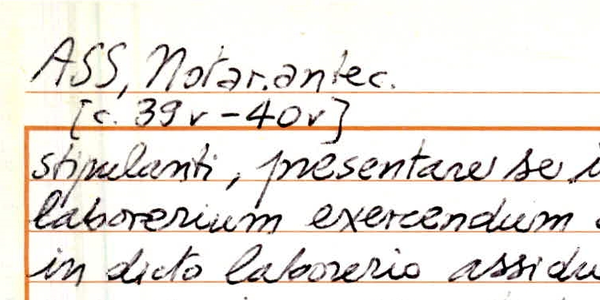 ASS, Notar. antec.
[c. 39v-40v]
stipulanti, presentare se
laborerium exercendum
in dicto laborerio assidu